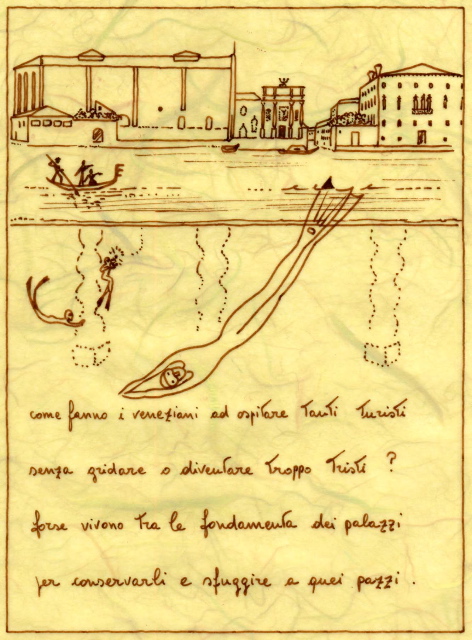 come fanno i veneziani ad ospitare tanti turisti
senza gridare o diventare troppo tristi ?
forse vivono tra le fondamenta dei palazzi
per conservarli e sfuggire a quei pazzi .